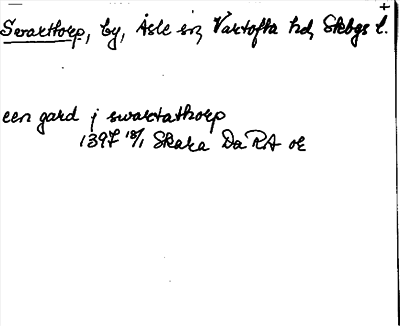 +
Svarthorp, by, Åsle sn, Vartofta hd, Skbgs l.
een gard j swartathorp
1397 18/1 Skara Da RA or